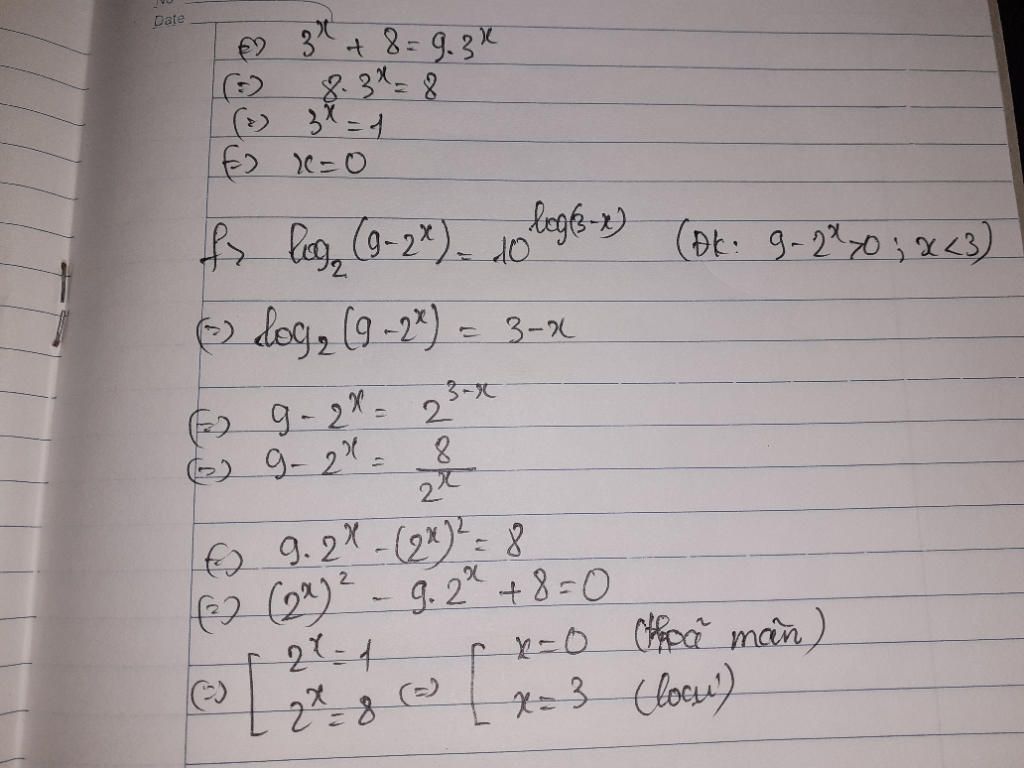 No
Date
(=) 3^x + 8 = 9.3^x
(=) 8.3^x = 8
(=) 3^x = 1
(=) x = 0
f> log₂(9-2^x) = 10^log(3-x) (ĐK: 9-2^x>0; x<3)
(=) log₂(9-2^x) = 3-x
(=) 9-2^x = 2^3-x
(=) 9-2^x = 8/2^x
(=) 9.2^x - (2^x)² = 8
(=) (2^x)² - 9.2^x + 8 = 0
(=) [ 2^x = 1 (=) [ x = 0 (thoả mãn)
2^x = 8 x = 3 (loại)